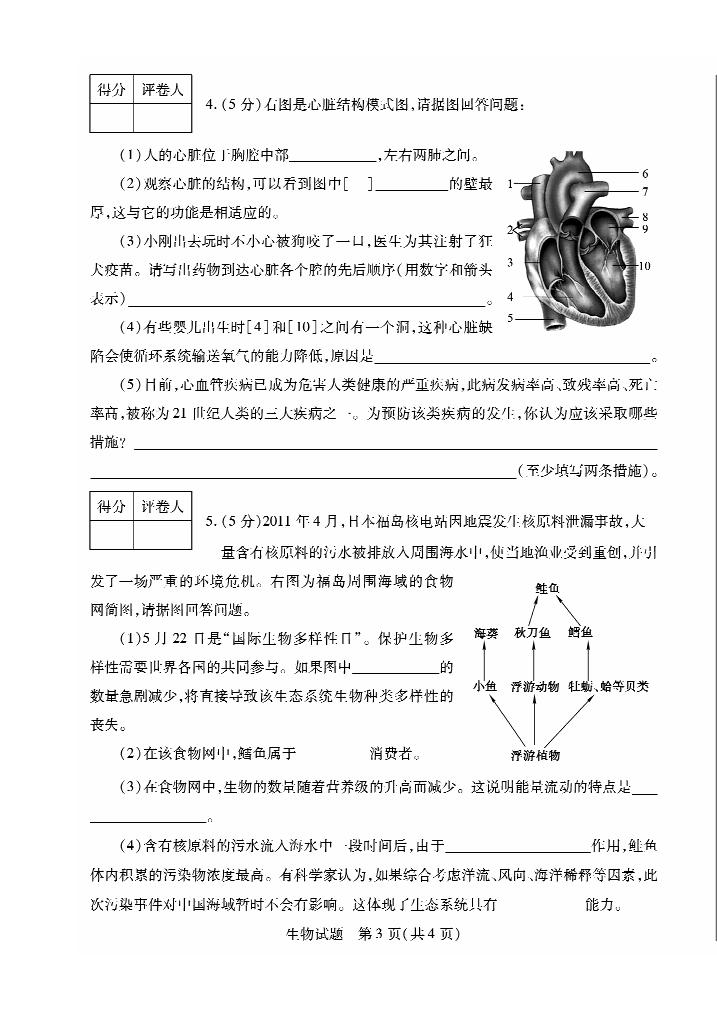 得分 评卷人
4.(5 分)右图是心脏结构模式图,请据图回答问题:
(1)人的心脏位于胸腔中部____________,左右两肺之间。
(2)观察心脏的结构,可以看到图中[ ]__________的壁最
厚,这与它的功能是相适应的。
(3)小刚出去玩时不小心被狗咬了一口,医生为其注射了狂
犬疫苗。请写出药物到达心脏各个腔的先后顺序(用数字和箭头
表示)__________________________________________________。
1
2
3
4
5
6
7
8
9
10
(4)有些婴儿出生时[4]和[10]之间有一个洞,这种心脏缺
陷会使循环系统输送氧气的能力降低,原因是______________________________________。
(5)目前,心血管疾病已成为危害人类健康的严重疾病,此病发病率高、致残率高、死亡
率高,被称为 21 世纪人类的三大疾病之一。为预防该类疾病的发生,你认为应该采取哪些
措施? __________________________________________________________________________
____________________________________________________________(至少填写两条措施)。
得分 评卷人
5.(5 分)2011 年 4 月,日本福岛核电站因地震发生核原料泄漏事故,大
量含有核原料的污水被排放入周围海水中,使当地渔业受到重创,并引
发了一场严重的环境危机。右图为福岛周围海域的食物
网简图,请据图回答问题。
(1)5 月 22 日是“国际生物多样性日”。保护生物多
样性需要世界各国的共同参与。如果图中____________的
数量急剧减少,将直接导致该生态系统生物种类多样性的
丧失。
(2)在该食物网中,鳕鱼属于 消费者。
鲑鱼
海葵 秋刀鱼 鳕鱼
小鱼 浮游动物 牡蛎、蛤等贝类
浮游植物
(3)在食物网中,生物的数量随着营养级的升高而减少。这说明能量流动的特点是____
________________。
(4)含有核原料的污水流入海水中一段时间后,由于____________________作用,鲑鱼
体内积累的污染物浓度最高。有科学家认为,如果综合考虑洋流、风向、海洋稀释等因素,此
次污染事件对中国海域暂时不会有影响。这体现了生态系统具有 能力。
生物试题 第 3 页(共 4 页)